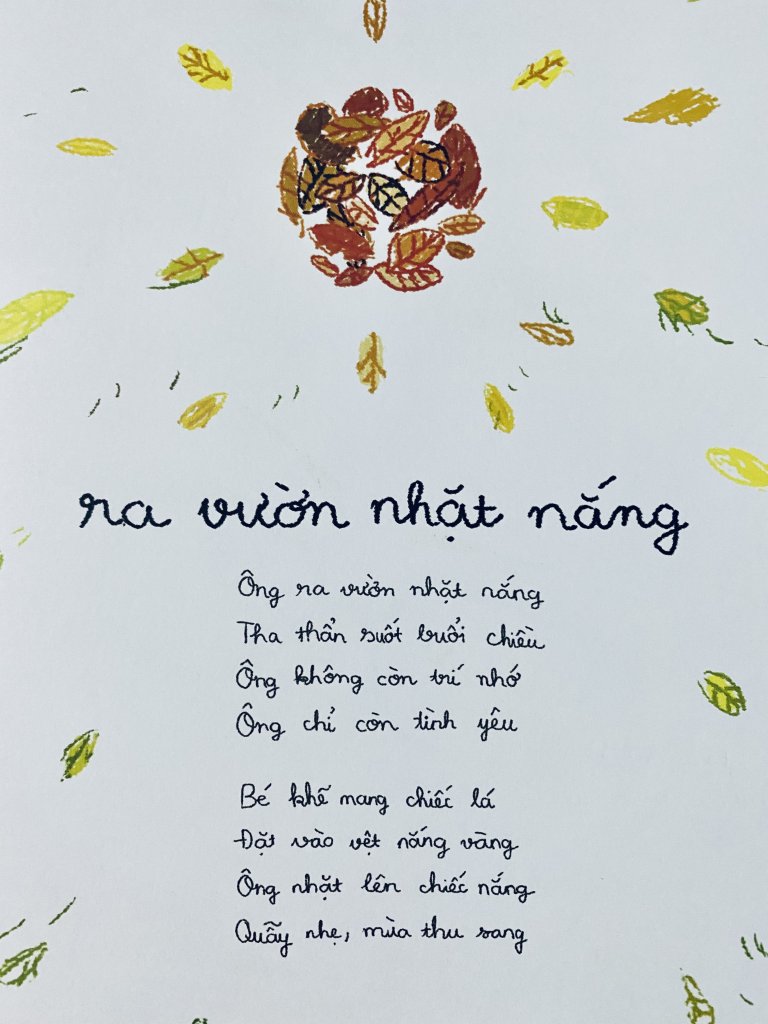 ra vườn nhặt nắng
Ông ra vườn nhặt nắng
Tha thẩn suốt buổi chiều
Ông không còn trí nhớ
Ông chỉ còn tình yêu
Bé khẽ mang chiếc lá
Đặt vào vệt nắng vàng
Ông nhặt lên chiếc nắng
Quẫy nhẹ, mùa thu sang